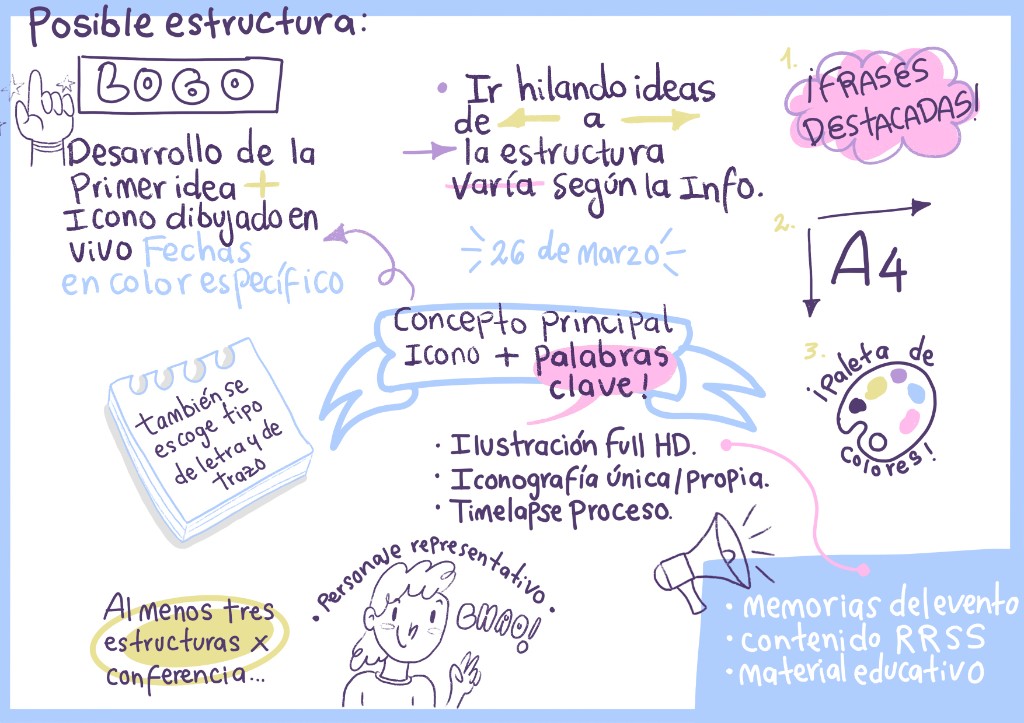 Posible estructura:
LOGO
Desarrollo de la
Primer idea +
Icono dibujado en
vivo Fechas
en color específico
• Ir hilando ideas
de a
la estructura
Varía según la Info.
26 de marzo
1.
¡FRASES
DESTACADAS!
2.
A4
3.
¡Paleta de
colores!
Concepto Principal
Icono + Palabras
clave!
también se
escoge tipo
de letra y de
trazo
· Ilustración full HD.
· Iconografía única/Propia.
· Timelapse Proceso.
• Personaje representativo.
CHAO!
Al menos tres
estructuras x
conferencia...
• Memorias del evento
• contenido RRSS
• material educativo